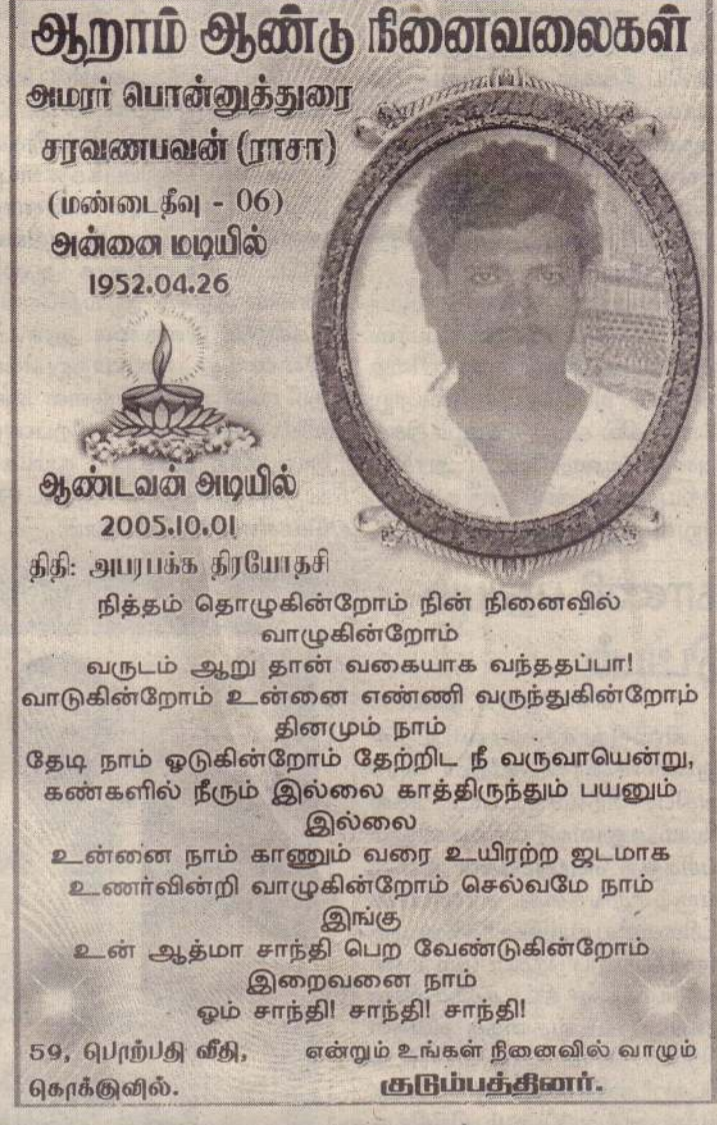 ஆறாம் ஆண்டு நினைவலைகள்
அமரர் பொன்னுத்துரை
சரவணபவன் (ராசா)
(மண்டைதீவு - 06)
அன்னை மடியில்
1952.04.26
ஆண்டவன் அடியில்
2005.10.01
திதி: அபரபக்க திரயோதசி
நித்தம் தொழுகின்றோம் நின் நினைவில்
வாழுகின்றோம்
வருடம் ஆறு தான் வகையாக வந்ததப்பா!
வாடுகின்றோம் உன்னை எண்ணி வருந்துகின்றோம்
தினமும் நாம்
தேடி நாம் ஓடுகின்றோம் தேற்றிட நீ வருவாயென்று,
கண்களில் நீரும் இல்லை காத்திருந்தும் பயனும்
இல்லை
உன்னை நாம் காணும் வரை உயிரற்ற ஜடமாக
உணர்வின்றி வாழுகின்றோம் செல்வமே நாம்
இங்கு
உன் ஆத்மா சாந்தி பெற வேண்டுகின்றோம்
இறைவனை நாம்
ஓம் சாந்தி! சாந்தி! சாந்தி!
59, பொற்பதி வீதி,
கொக்குவில்.
என்றும் உங்கள் நினைவில் வாழும்
குடும்பத்தினர்.